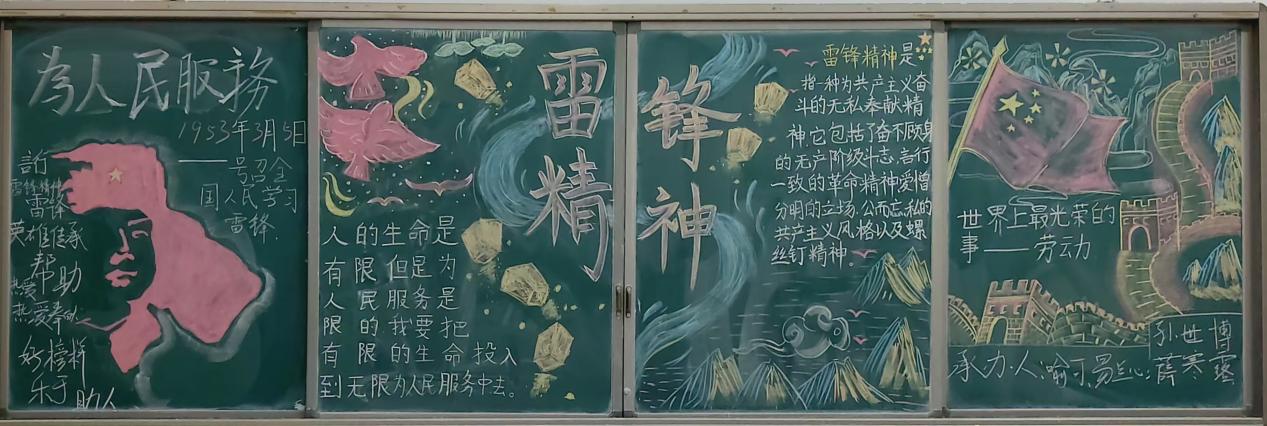 為人民服務
1953年3月5日
——号召全
国人民学习
雷锋.
雷锋精神
雷锋
英雄传承
帮助
热爱
热爱奉献
好榜样
乐于
助人
人的生命是
有限但是为
人民服务是
限的我要把
有限的生命投入
到无限为人民服务中去。
雷锋
精神
雷锋精神是
指一种为共产主义奋
斗的无私奉献精
神,它包括了奋不顾身
的无产阶级斗志,言行
一致的革命精神爱憎
分明的立场.公而忘私的
共产主义风格以及螺
丝钉精神。
世界上最光荣的
事——劳动
孙世博
承力人:喻可.易
薛寒露